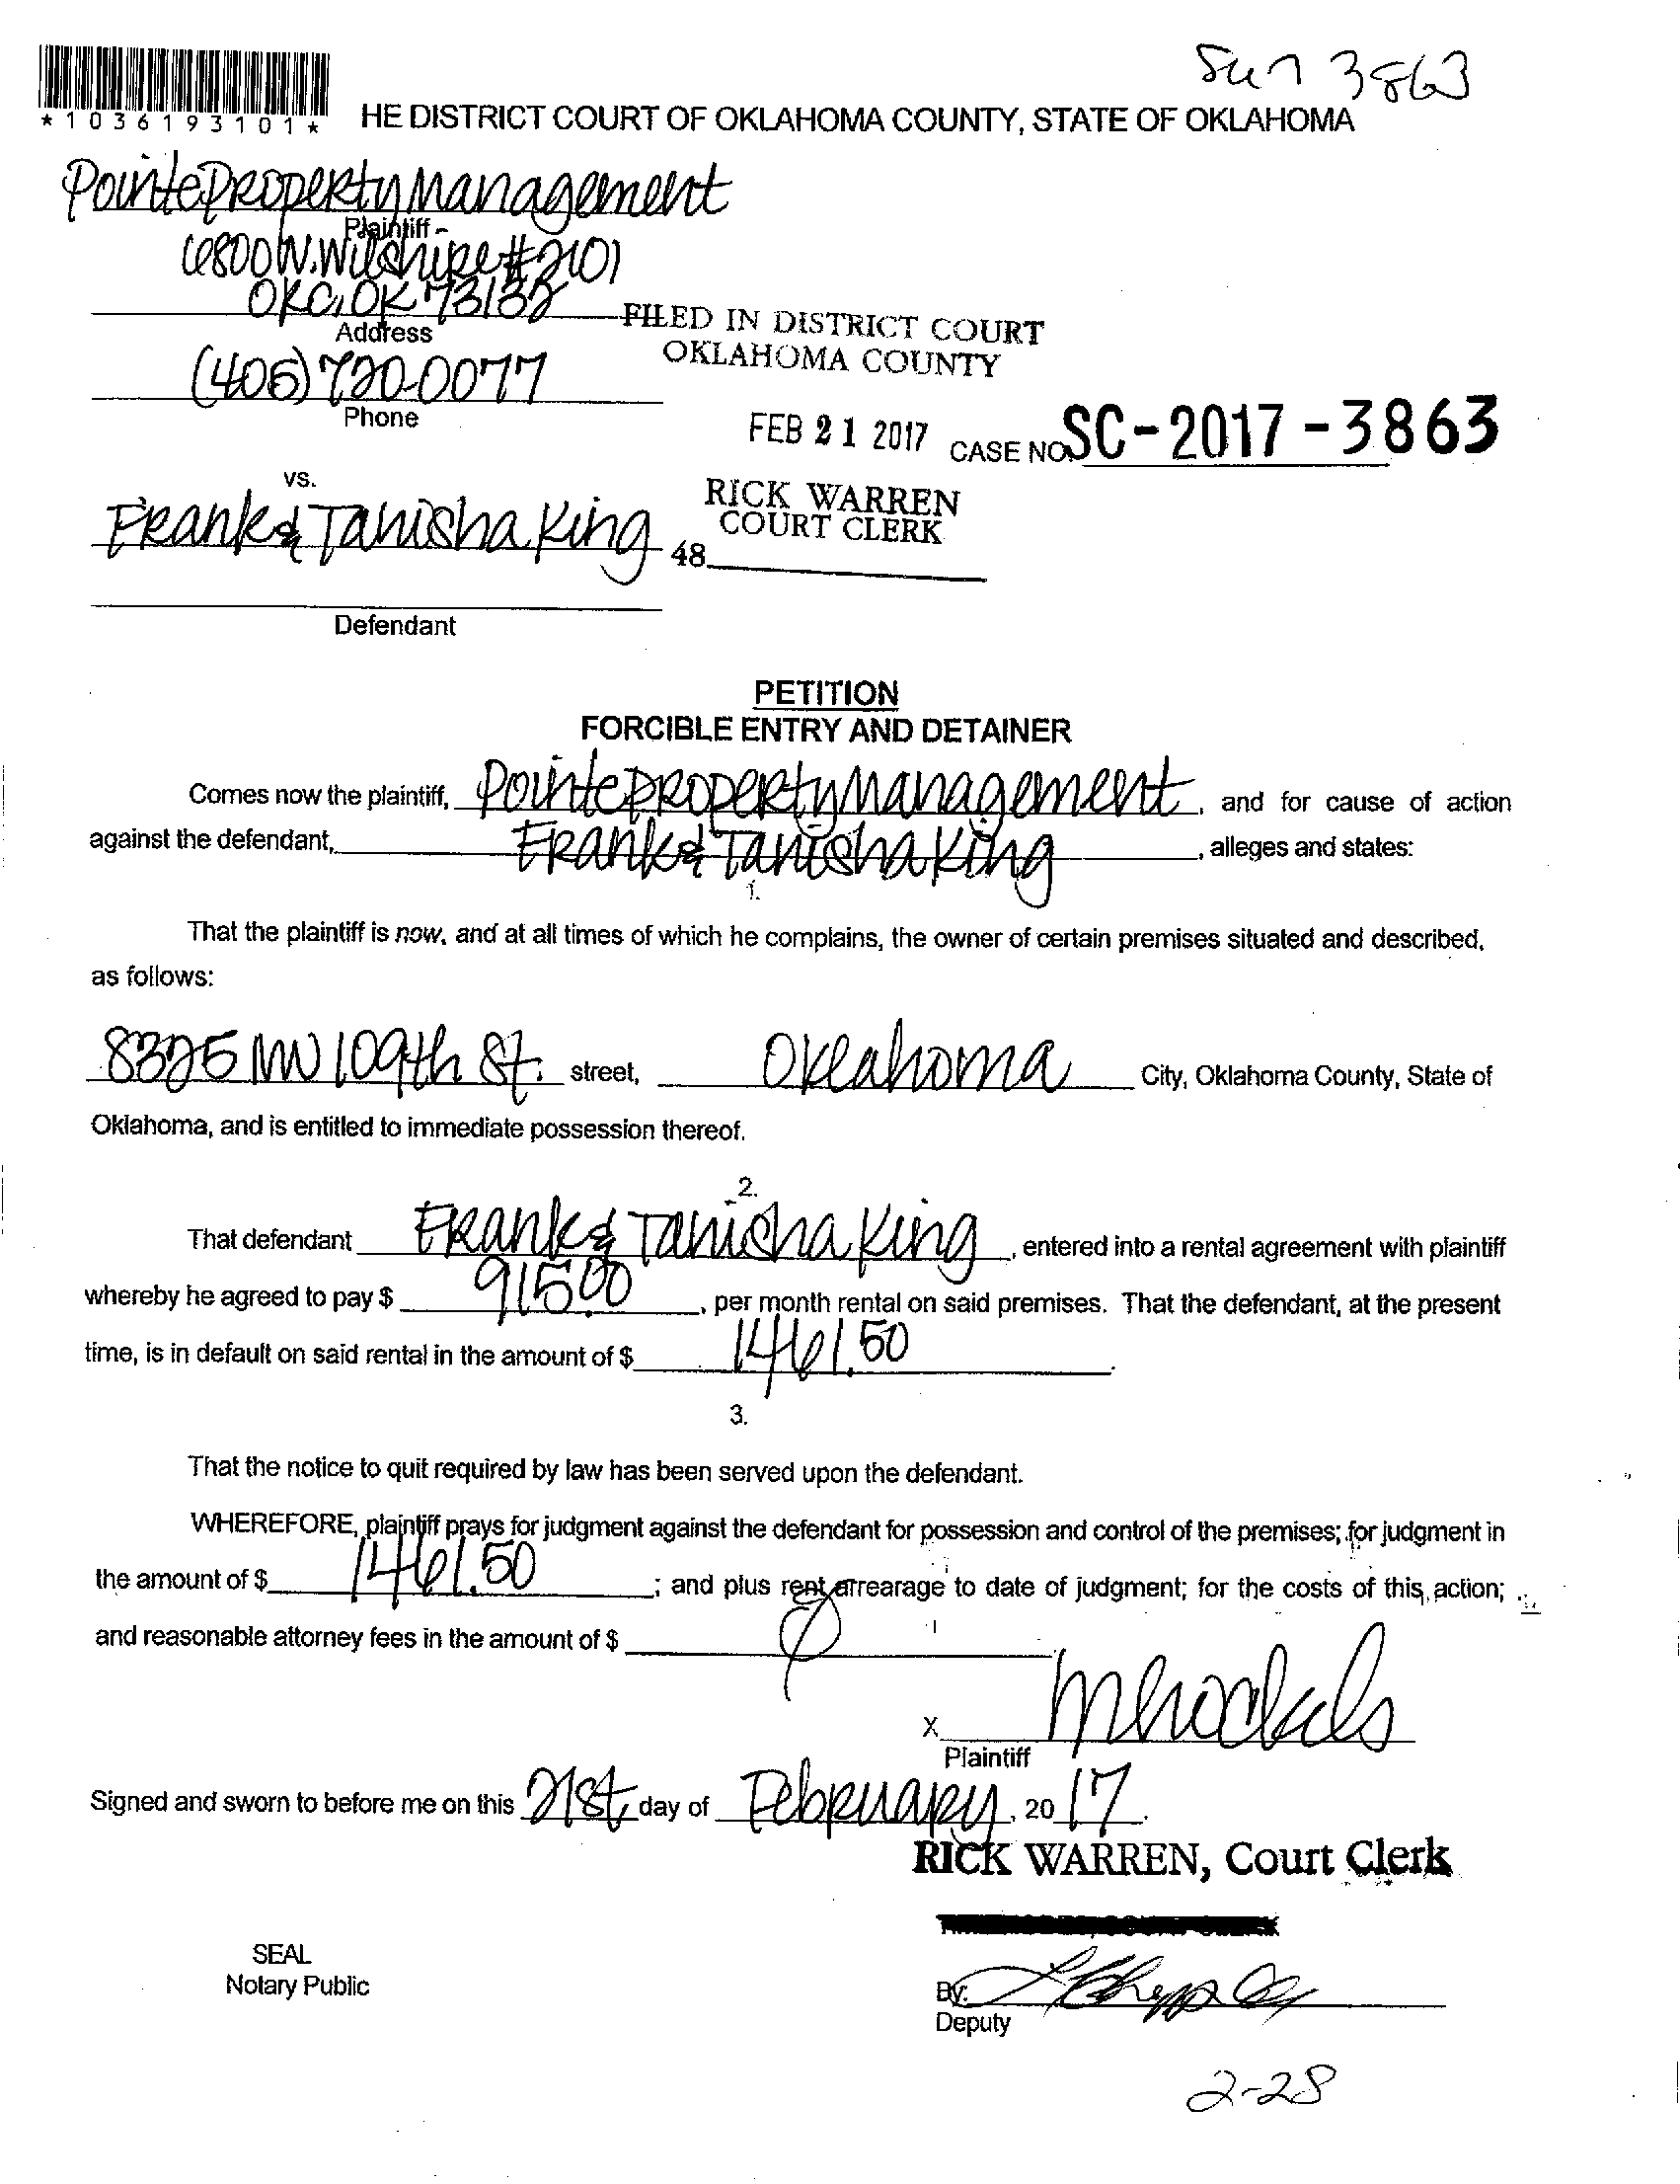 3863
*1036193101*
HE DISTRICT COURT OF OKLAHOMA COUNTY, STATE OF OKLAHOMA
Pointe Property Management
Plaintiff
6800 W. Wilshire #2101
OKC, OK 73132
Address
(405) 720-0077
Phone
FILED IN DISTRICT COURT
OKLAHOMA COUNTY
FEB 21 2017
CASE NO SC-2017-3863
vs.
Frank & Tanisha King
RICK WARREN
COURT CLERK
48
Defendant
PETITION
FORCIBLE ENTRY AND DETAINER
Comes now the plaintiff, Pointe Property Management, and for cause of action
against the defendant, Frank & Tanisha King, alleges and states:
1.
That the plaintiff is now, and at all times of which he complains, the owner of certain premises situated and described,
as follows:
8325 NW 109th St. street, Oklahoma City, Oklahoma County, State of
Oklahoma, and is entitled to immediate possession thereof.
2.
That defendant Frank & Tanisha King, entered into a rental agreement with plaintiff
whereby he agreed to pay $ 915.00, per month rental on said premises. That the defendant, at the present
time, is in default on said rental in the amount of $ 1461.50.
3.
That the notice to quit required by law has been served upon the defendant.
WHEREFORE, plaintiff prays for judgment against the defendant for possession and control of the premises; for judgment in
the amount of $ 1461.50; and plus rent arrearage to date of judgment; for the costs of this action;
and reasonable attorney fees in the amount of $
X
Plaintiff
Signed and sworn to before me on this 21st, day of February, 20 17.
RICK WARREN, Court Clerk
SEAL
Notary Public
By:
Deputy
2-28